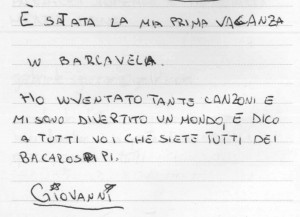 È SATATA LA MIA PRIMA VAGANZA
W BARCAVELA.
HO INVENTATO TANTE CANZONI E
MI SONO DIVERTITO UN MONDO, E DICO
A TUTTI VOI CHE SIETE TUTTI DEI
BACAROSPIPI.
GIOVANNI